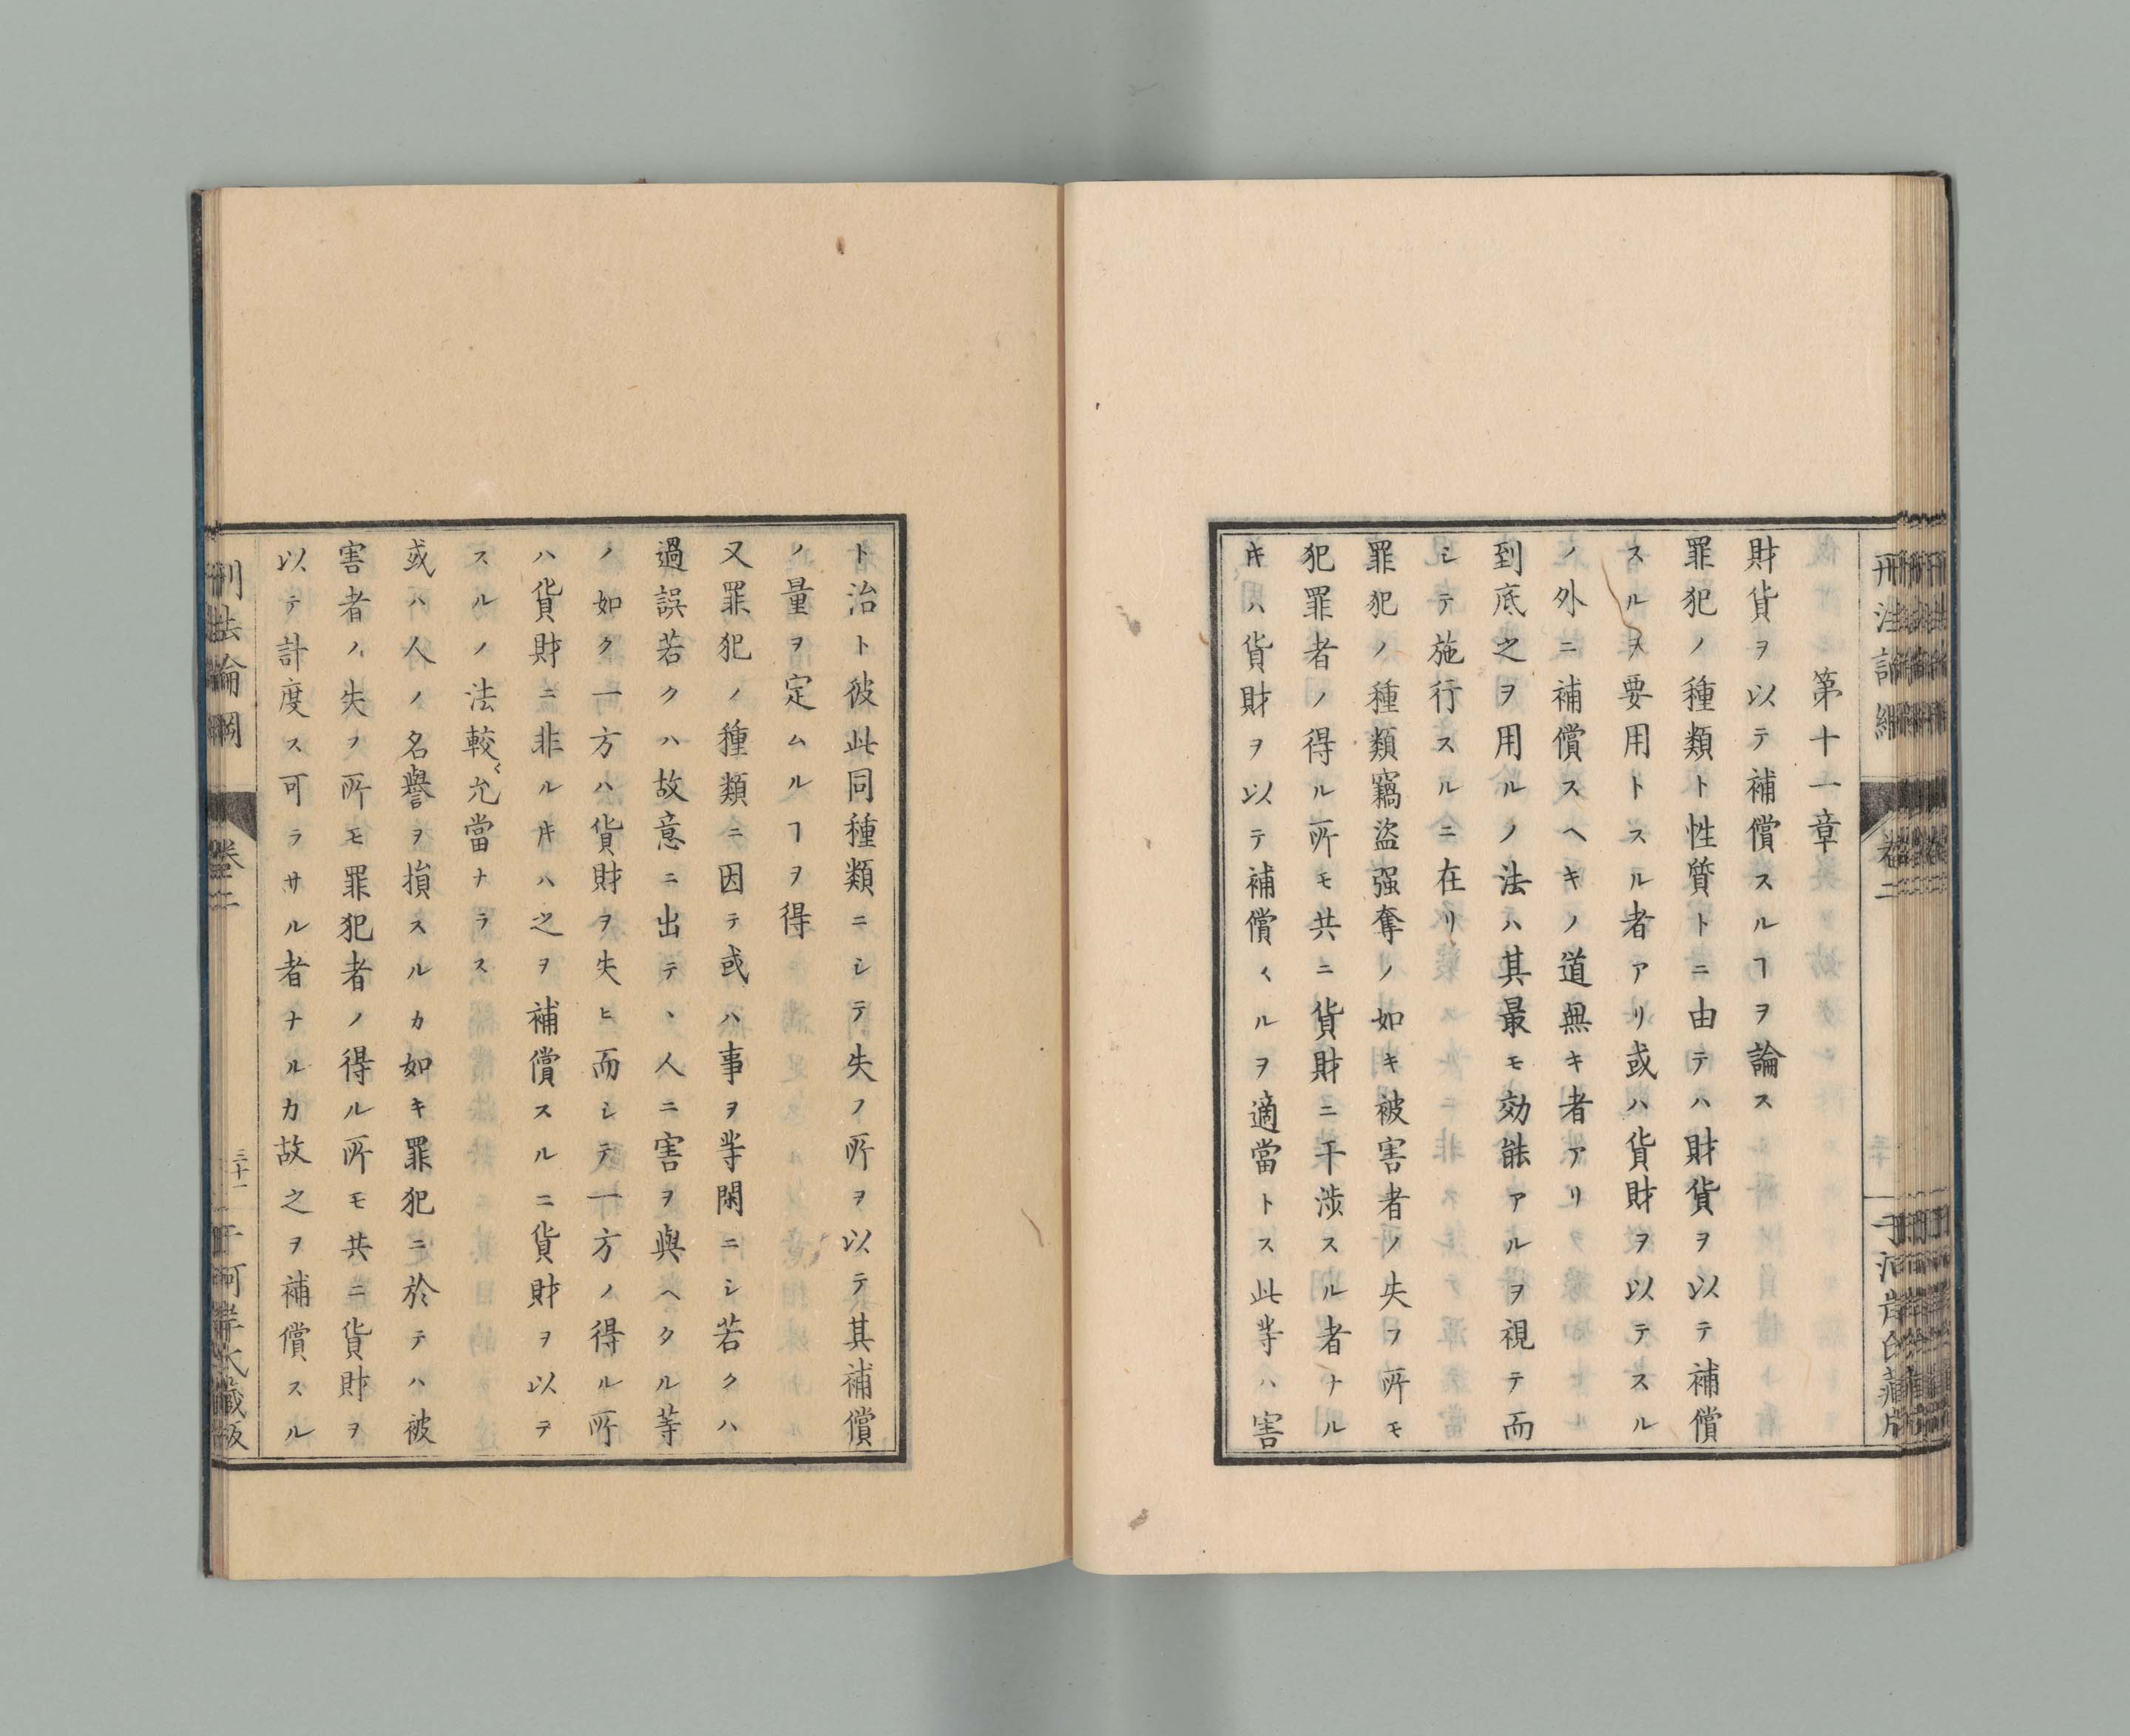 第十一章
財貨ヲ以テ補償スルヿヲ論ス
罪犯ノ種類ト性質トニ由テハ財貨ヲ以テ補償
スルヲ要用トスル者アリ或ハ貨財ヲ以テスル
ノ外ニ補償スヘキノ道無キ者アリ
到底之ヲ用ルノ法ハ其最モ効能アルヲ視テ而
シテ施行スルニ在リ
罪犯ノ種類竊盗强奪ノ如キ被害者ノ失フ所モ
犯罪者ノ得ル所モ共ニ貨財ニ干渉スル者ナル
𪜈ハ貨財ヲ以テ補償スルヲ適當トス此等ハ害
ト治ト彼此同種類ニシテ失フ所ヲ以テ其補償
ノ量ヲ定ムルヿヲ得
又罪犯ノ種類ニ因テ或ハ事ヲ等閑ニシ若クハ
過誤若クハ故意ニ出テヽ人ニ害ヲ與ヘタル等
ノ如ク一方ハ貨財ヲ失ヒ而シテ一方ノ得ル所
ハ貨財ニ非ル𪜈ハ之ヲ補償スルニ貨財ヲ以テ
スルノ法較〻允當ナラス
或ハ人ノ名譽ヲ損スルカ如キ罪犯ニ於テハ被
害者ノ失フ所モ罪犯者ノ得ル所モ共ニ貨財ヲ
以テ計度ス可ラサル者ナルカ故之ヲ補償スル
刑法論綱
卷二
三十一
河岸氏藏版